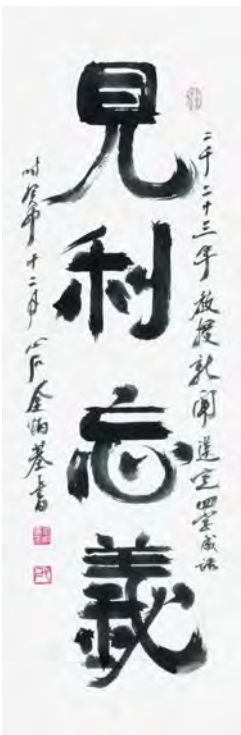 見利忘義
二千二十三年教授新聞選定四字成語
時癸卯十二月 金炳基書